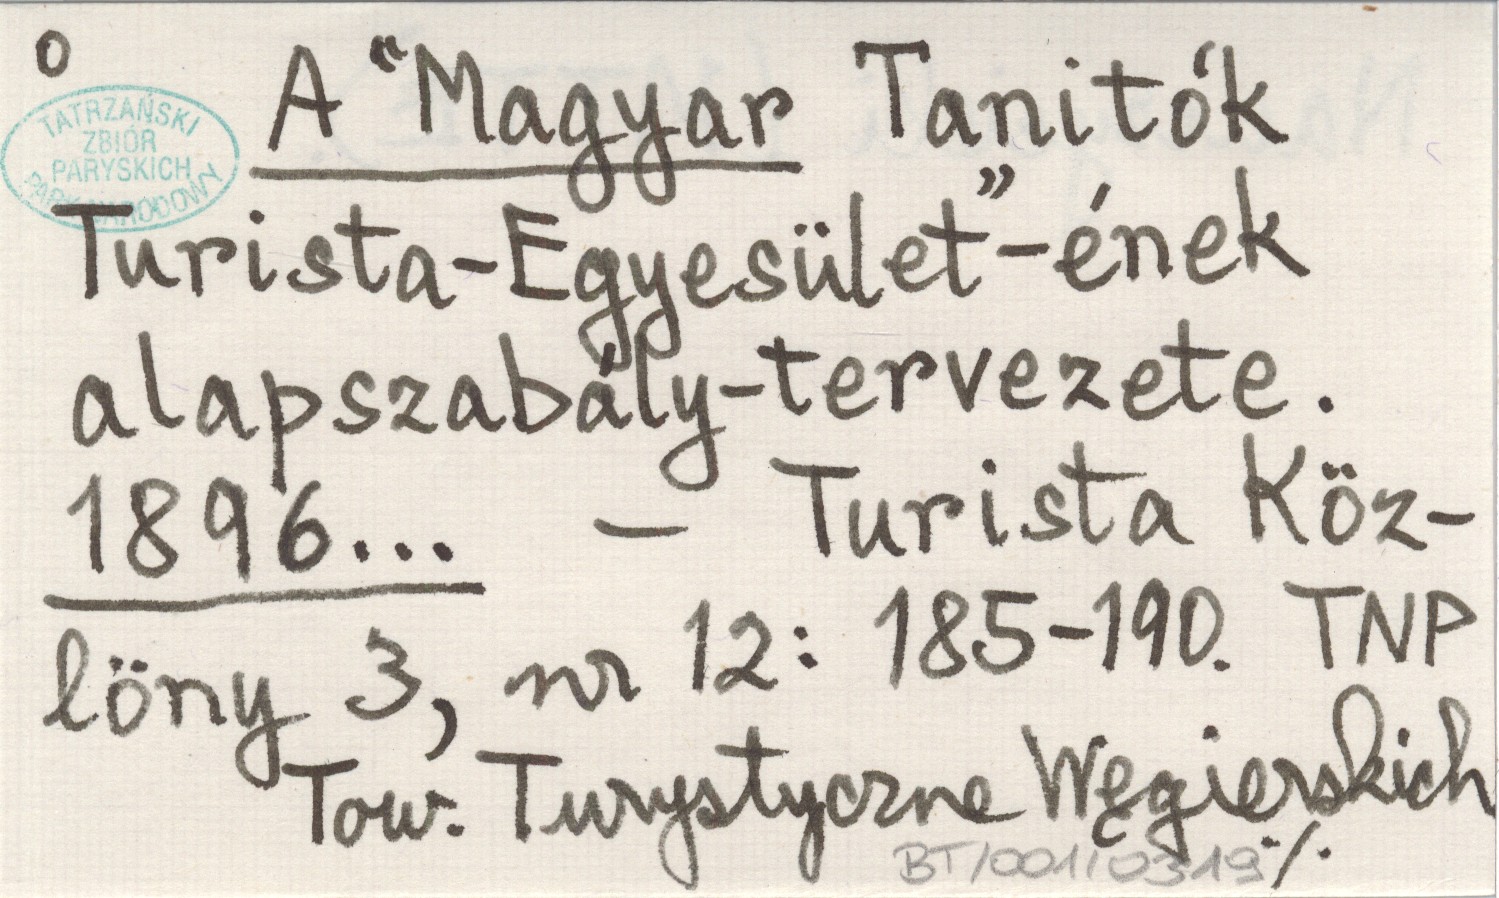 o
TATRZAŃSKI
ZBIÓR
PARYSKICH
PARK NARODOWY
A “Magyar Tanitók
Turista-Egyesület”-ének
alapszabály-tervezete.
1896... — Turista Köz-
löny 3, nr 12: 185-190. TNP
Tow. Turystyczne Węgierskich
BT/001/0319 ·/·